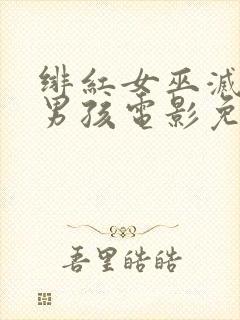 绯红女巫滅
男孩電影免
吾里皓皓